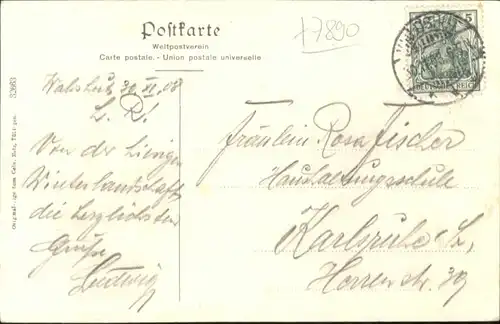 Postkarte
Weltpostverein
Carte postale. - Union postale universelle
+7890
5
DEUTSCHES REICH
33963
Waldshut 30 XI. 08
L. R!
Von der
Winterlandschaft
die herzlichsten
Grüße
Ludwig
Fräulein Rosa Fischer
Haushaltungsschule
Karlsruhe
Herren str. 39